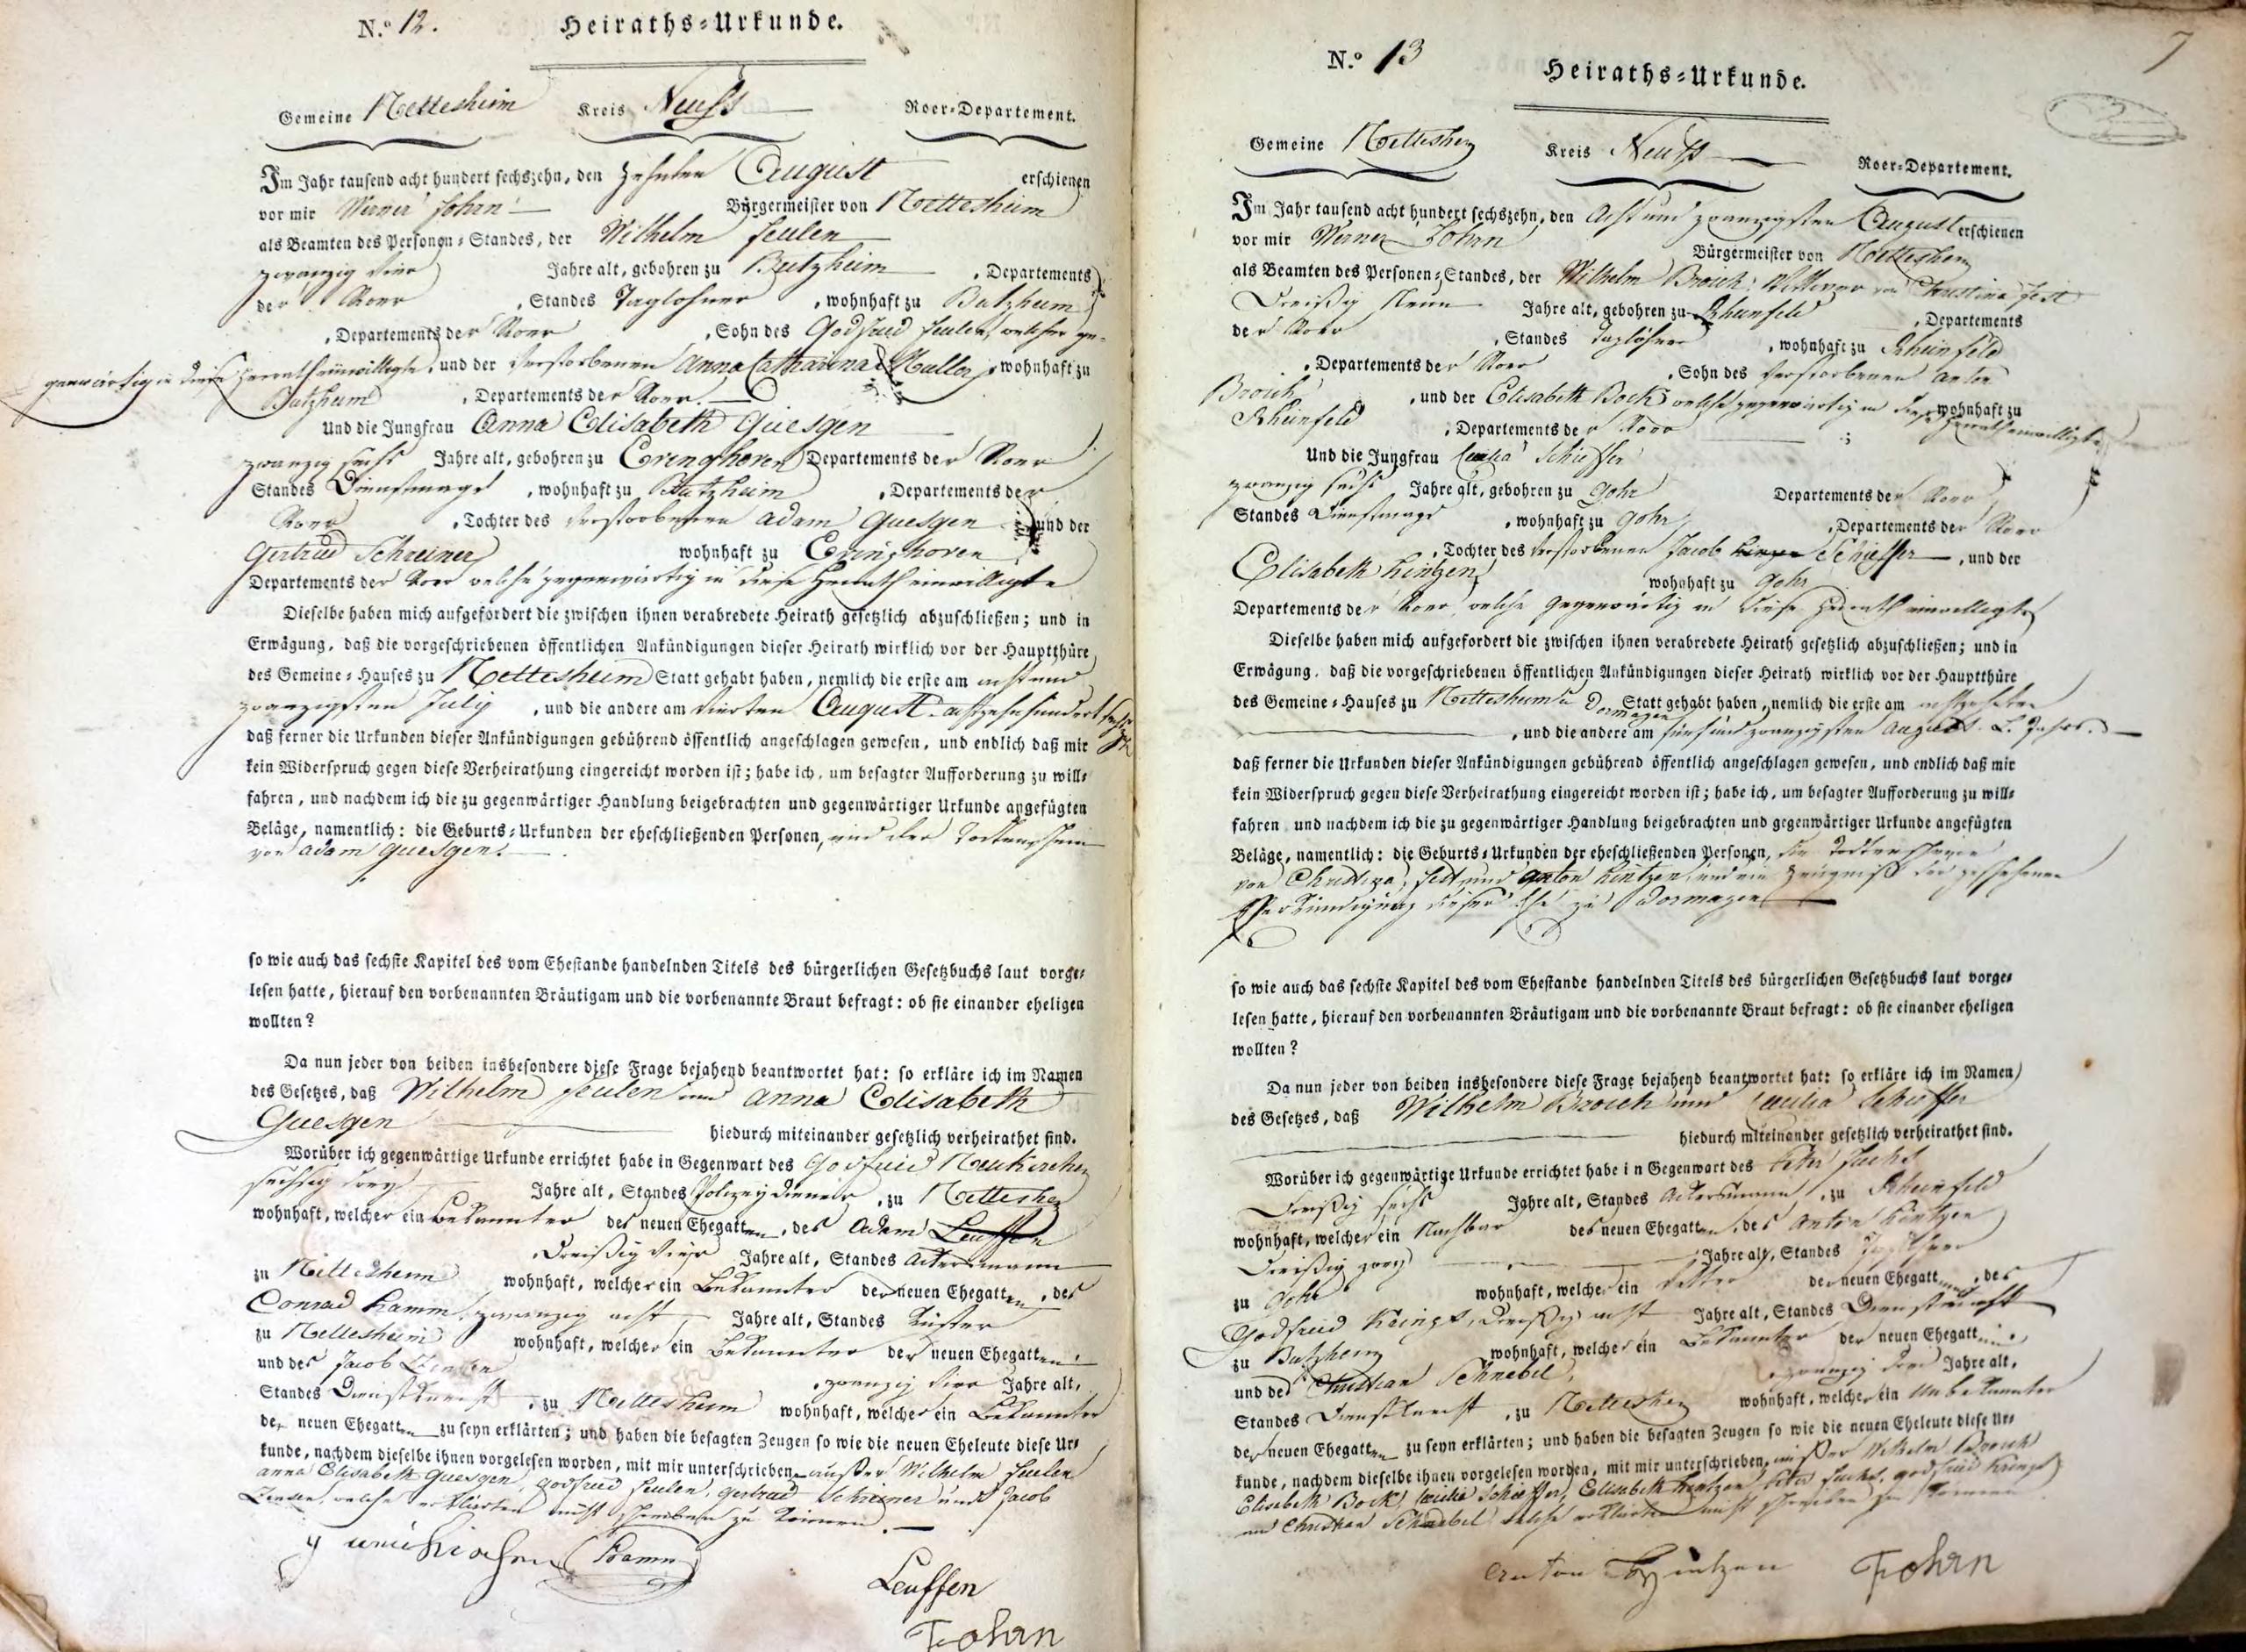 N.o 12.
Heiraths-Urkunde.
Gemeine Nettesheim Kreis Neuss Roer-Departement.
Im Jahr tausend acht hundert sechszehn, den zehnten August erschienen
vor mir Werner Fohrn Bürgermeister von Nettesheim
als Beamten des Personen-Standes, der Wilhelm Feulen
zwanzig vier Jahre alt, gebohren zu Butzheim, Departements
der Roer, Standes Taglohner, wohnhaft zu Butzheim
, Departements der Roer, Sohn des Godfried Feulen, welcher ge-
genwärtig in diese Heirath einwilligte, und der verstorbenen Anna Catharina Muller, wohnhaft zu
Butzheim, Departements der Roer.
Und die Jungfrau Anna Elisabeth Guesgen
zwanzig sechs Jahre alt, gebohren zu Evinghoven Departements der Roer
Standes Dienstmagd, wohnhaft zu Butzheim, Departements der
Roer, Tochter des verstorbenen Adam Guesgen und der
Gertrud Schreiner wohnhaft zu Evinghoven
Departements der Roer welche gegenwärtig in diese Heirath einwilligte
Dieselbe haben mich aufgefordert die zwischen ihnen verabredete Heirath gesetzlich abzuschließen; und in
Erwägung, daß die vorgeschriebenen öffentlichen Ankündigungen dieser Heirath wirklich vor der Hauptthüre
des Gemeine-Hauses zu Nettesheim Statt gehabt haben, nemlich die erste am acht und
zwanzigsten July, und die andere am vierten August achtzehnhundert sechszehn
daß ferner die Urkunden dieser Ankündigungen gebührend öffentlich angeschlagen gewesen, und endlich daß mir
kein Widerspruch gegen diese Verheirathung eingereicht worden ist; habe ich, um besagter Aufforderung zu will-
fahren, und nachdem ich die zu gegenwärtiger Handlung beigebrachten und gegenwärtiger Urkunde angefügten
Beläge, namentlich: die Geburts-Urkunden der eheschließenden Personen, und der Todtenschein
von Adam Guesgen.
so wie auch das sechste Kapitel des vom Ehestande handelnden Titels des bürgerlichen Gesetzbuchs laut vorge-
lesen hatte, hierauf den vorbenannten Bräutigam und die vorbenannte Braut befragt: ob sie einander eheligen
wollten?
Da nun jeder von beiden insbesondere diese Frage bejahend beantwortet hat: so erkläre ich im Namen
des Gesetzes, daß Wilhelm Feulen und Anna Elisabeth
Guesgen hiedurch miteinander gesetzlich verheirathet sind.
Worüber ich gegenwärtige Urkunde errichtet habe in Gegenwart des Godfried Neukirchen
sechsig drey Jahre alt, Standes Polizeydiener, zu Nettesheim
wohnhaft, welcher ein Bekannter der neuen Ehegatten, des Adam Leuffen
, Dreißig vier Jahre alt, Standes Ackersmann
zu Nettesheim wohnhaft, welcher ein Bekannter der neuen Ehegatten, des
Conrad Kamm, zwanzig acht Jahre alt, Standes Küster
zu Nettesheim wohnhaft, welcher ein Bekannter der neuen Ehegatten
und des Jacob, zwanzig vier Jahre alt,
Standes Dienstknecht, zu Nettesheim wohnhaft, welcher ein Bekannter
der neuen Ehegatten zu seyn erklärten; und haben die besagten Zeugen so wie die neuen Eheleute diese Ur-
kunde, nachdem dieselbe ihnen vorgelesen worden, mit mir unterschrieben außer Wilhelm Feulen
Anna Elisabeth Guesgen, Godfried Feulen, Gertrud Schreiner und Jacob
welche erklärten nicht schreiben zu können.
Kamm
Leuffen
Fohrn
7
N.o 13
Heiraths-Urkunde.
Gemeine Nettesheim Kreis Neuss Roer-Departement.
Im Jahr tausend acht hundert sechszehn, den Acht und zwanzigsten August erschienen
vor mir Werner Fohrn Bürgermeister von Nettesheim
als Beamten des Personen-Standes, der Wilhelm Broich Wittwer von Christina Feit
Dreißig Neun Jahre alt, gebohren zu Rheinfeld, Departements
der Roer, Standes Taglöhner, wohnhaft zu Rheinfeld
, Departements der Roer, Sohn des verstorbenen Anton
Broich, und der Elisabeth Bock welche gegenwärtig in diese Heirath einwilligte wohnhaft zu
Rheinfeld, Departements der Roer;
Und die Jungfrau Cecilia Schieffer
zwanzig sechs Jahre alt, gebohren zu Gohr Departements der Roer
Standes Dienstmagd, wohnhaft zu Gohr, Departements der Roer
, Tochter des verstorbenen Jacob Schieffer, und der
Elisabeth Kintzen wohnhaft zu Gohr
Departements der Roer welche gegenwärtig in diese Heirath einwilligte
Dieselbe haben mich aufgefordert die zwischen ihnen verabredete Heirath gesetzlich abzuschließen; und in
Erwägung, daß die vorgeschriebenen öffentlichen Ankündigungen dieser Heirath wirklich vor der Hauptthüre
des Gemeine-Hauses zu Nettesheim u Dormagen Statt gehabt haben, nemlich die erste am achtzehnten
, und die andere am fünf und zwanzigsten August l. Jahrs.
daß ferner die Urkunden dieser Ankündigungen gebührend öffentlich angeschlagen gewesen, und endlich daß mir
kein Widerspruch gegen diese Verheirathung eingereicht worden ist; habe ich, um besagter Aufforderung zu will-
fahren und nachdem ich die zu gegenwärtiger Handlung beigebrachten und gegenwärtiger Urkunde angefügten
Beläge, namentlich: die Geburts-Urkunden der eheschließenden Personen, die Todtenscheine
von Christina Feit und Anton Kintzen, und ein Zeugniß der geschehenen
Verkündigung dieser Ehe zu Dormagen
so wie auch das sechste Kapitel des vom Ehestande handelnden Titels des bürgerlichen Gesetzbuchs laut vorge-
lesen hatte, hierauf den vorbenannten Bräutigam und die vorbenannte Braut befragt: ob sie einander eheligen
wollten?
Da nun jeder von beiden insbesondere diese Frage bejahend beantwortet hat: so erkläre ich im Namen
des Gesetzes, daß Wilhelm Broich und Cecilia Schieffer
hiedurch miteinander gesetzlich verheirathet sind.
Worüber ich gegenwärtige Urkunde errichtet habe in Gegenwart des Peter Fuchs
Dreißig sechs Jahre alt, Standes Ackersmann, zu Rheinfeld
wohnhaft, welcher ein Nachbar des neuen Ehegatten, des Anton Kintzen
Dreißig zwey Jahre alt, Standes Taglöhner
zu Gohr wohnhaft, welcher ein Vetter der neuen Ehegattinn, des
Godfried Krings, Dreißig acht Jahre alt, Standes Dienstknecht
zu Butzheim wohnhaft, welcher ein Bekannter der neuen Ehegattinn
und des Christian Schnebel, zwanzig drei Jahre alt,
Standes Dienstknecht, zu Nettesheim wohnhaft, welcher ein Unbekannter
der neuen Ehegatten zu seyn erklärten; und haben die besagten Zeugen so wie die neuen Eheleute diese Ur-
kunde, nachdem dieselbe ihnen vorgelesen worden, mit mir unterschrieben, außer Wilhelm Broich
Elisabeth Bock, Cecilia Schieffer, Elisabeth Kintzen Peter Fuchs, Godfried Krings
und Christian Schnebel welche erklärten nicht schreiben zu können
Anton Kintzen Fohrn